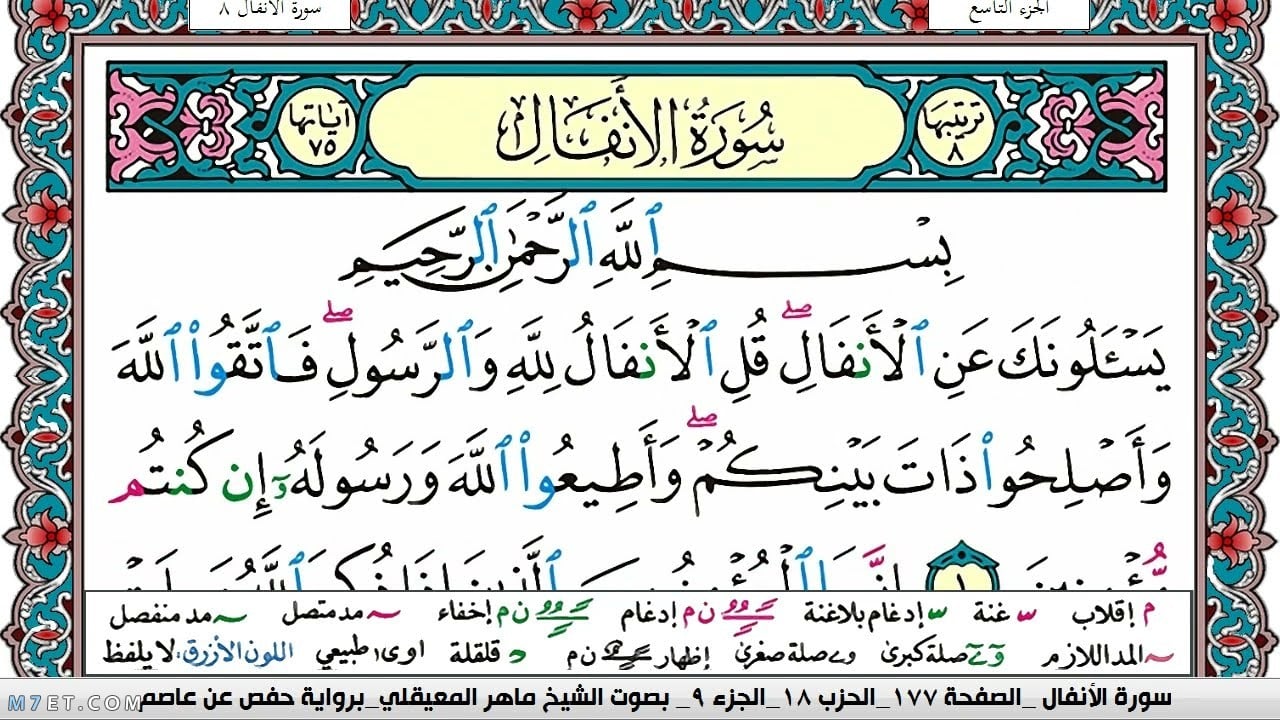 الجزء التاسع
سورة الأنفال ٨
ترتيبها ٨
سُورَةُ الأَنفَالِ
آياتها ٧٥
بِسْمِ ٱللَّهِ ٱلرَّحْمَٰنِ ٱلرَّحِيمِ
يَسْـَٔلُونَكَ عَنِ ٱلْأَنفَالِ ۖ قُلِ ٱلْأَنفَالُ لِلَّهِ وَٱلرَّسُولِ ۖ فَٱتَّقُوا۟ ٱللَّهَ
وَأَصْلِحُوا۟ ذَاتَ بَيْنِكُمْ ۖ وَأَطِيعُوا۟ ٱللَّهَ وَرَسُولَهُۥٓ إِن كُنتُم
م إقلاب س غنة س إدغام بلاغنة ن م إدغام ن م إخفاء مد متصل مد منفصل
المد اللازم صلة كبرى صلة صغرى إظهار ن م د قلقلة اوى طبيعي اللون الأزرق: لا يلفظ
سورة الأنفال _الصفحة ١٧٧_الحزب ١٨_الجزء ٩_ بصوت الشيخ ماهر المعيقلي_برواية حفص عن عاصم
M7ET.COM